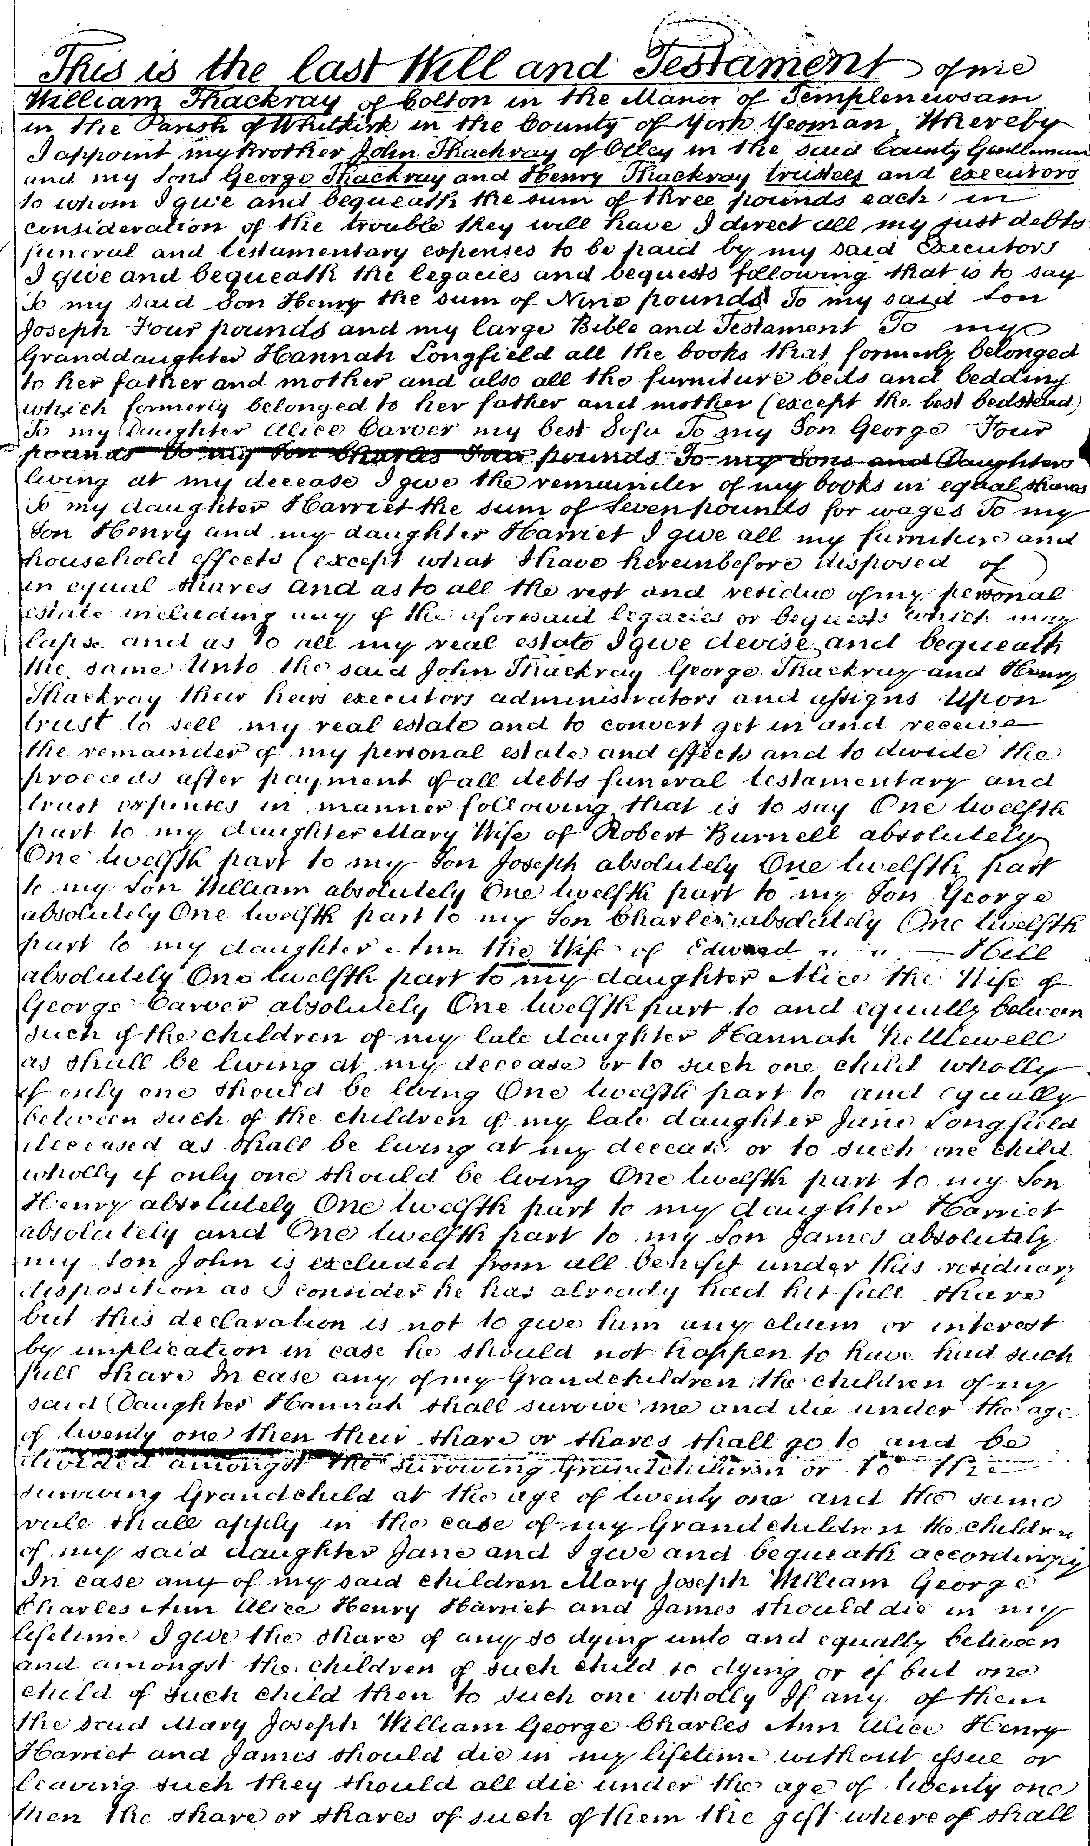 This is the last Will and Testament of me
William Thackray of Colton in the Manor of Templenewsam
in the Parish of Whitkirk in the County of York Yeoman Whereby
I appoint my Brother John Thackray of Otley in the said County Gentleman
and my Sons George Thackray and Henry Thackray trustees and executors
to whom I give and bequeath the sum of three pounds each in
consideration of the trouble they will have I direct all my just debts
funeral and testamentary expenses to be paid by my said Executors
I give and bequeath the legacies and bequests following that is to say
To my said Son Henry the sum of Nine pounds To my said Son
Joseph Four pounds and my large Bible and Testament To my
Granddaughter Hannah Longfield all the books that formerly belonged
to her father and mother and also all the furniture beds and bedding
which formerly belonged to her father and mother (except the best bedstead)
To my Daughter Alice Carver my best Sofa To my Son George Four
pounds To my Son Charles Four pounds To my Sons and Daughters
living at my decease I give the remainder of my books in equal shares
To my daughter Harriet the sum of Seven pounds for wages To my
Son Henry and my daughter Harriet I give all my furniture and
household effects (except what I have hereinbefore disposed of)
in equal shares and as to all the rest and residue of my personal
estate including any of the aforesaid legacies or bequests which may
lapse and as to all my real estate I give devise and bequeath
the same Unto the said John Thackray George Thackray and Henry
Thackray their heirs executors administrators and assigns Upon
trust to sell my real estate and to convert get in and receive
the remainder of my personal estate and effects and to divide the
proceeds after payment of all debts funeral testamentary and
trust expenses in manner following that is to say One twelfth
part to my daughter Mary Wife of Robert Burnell absolutely
One twelfth part to my Son Joseph absolutely One twelfth part
to my Son William absolutely One twelfth part to my Son George
absolutely One twelfth part to my Son Charles absolutely One twelfth
part to my daughter Ann the Wife of Edward Hill
absolutely One twelfth part to my daughter Alice the Wife of
George Carver absolutely One twelfth part to and equally between
such of the children of my late daughter Hannah Kettlewell
as shall be living at my decease or to such one child wholly
if only one should be living One twelfth part to and equally
between such of the children of my late daughter Jane Longfield
deceased as shall be living at my decease or to such one child
wholly if only one should be living One twelfth part to my Son
Henry absolutely One twelfth part to my daughter Harriet
absolutely and One twelfth part to my Son James absolutely
my Son John is excluded from all benefit under this residuary
disposition as I consider he has already had his full share
but this declaration is not to give him any claim or interest
by implication in case he should not happen to have had such
full share In case any of my Grandchildren the children of my
said Daughter Hannah shall survive me and die under the age
of twenty one then their share or shares shall go to and be
divided amongst the surviving Grandchildren or to the
surviving Grandchild at the age of twenty one and the same
rule shall apply in the case of my Grandchildren the children
of my said daughter Jane and I give and bequeath accordingly
In case any of my said children Mary Joseph William George
Charles Ann Alice Henry Harriet and James should die in my
lifetime I give the share of any so dying unto and equally between
and amongst the children of such child so dying or if but one
child of such child then to such one wholly If any of them
the said Mary Joseph William George Charles Ann Alice Henry
Harriet and James should die in my lifetime without issue or
leaving such they should all die under the age of twenty one
then the share or shares of such of them the gift whereof shall